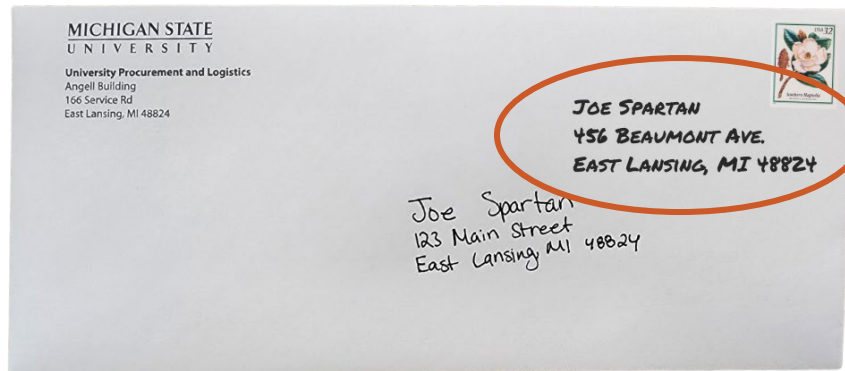 MICHIGAN STATE
UNIVERSITY
University Procurement and Logistics
Angell Building
166 Service Rd
East Lansing, MI 48824
USA 32
Southern Magnolia
JOE SPARTAN
456 BEAUMONT AVE.
EAST LANSING, MI 48824
Joe Spartan
123 Main Street
East Lansing, MI 48824